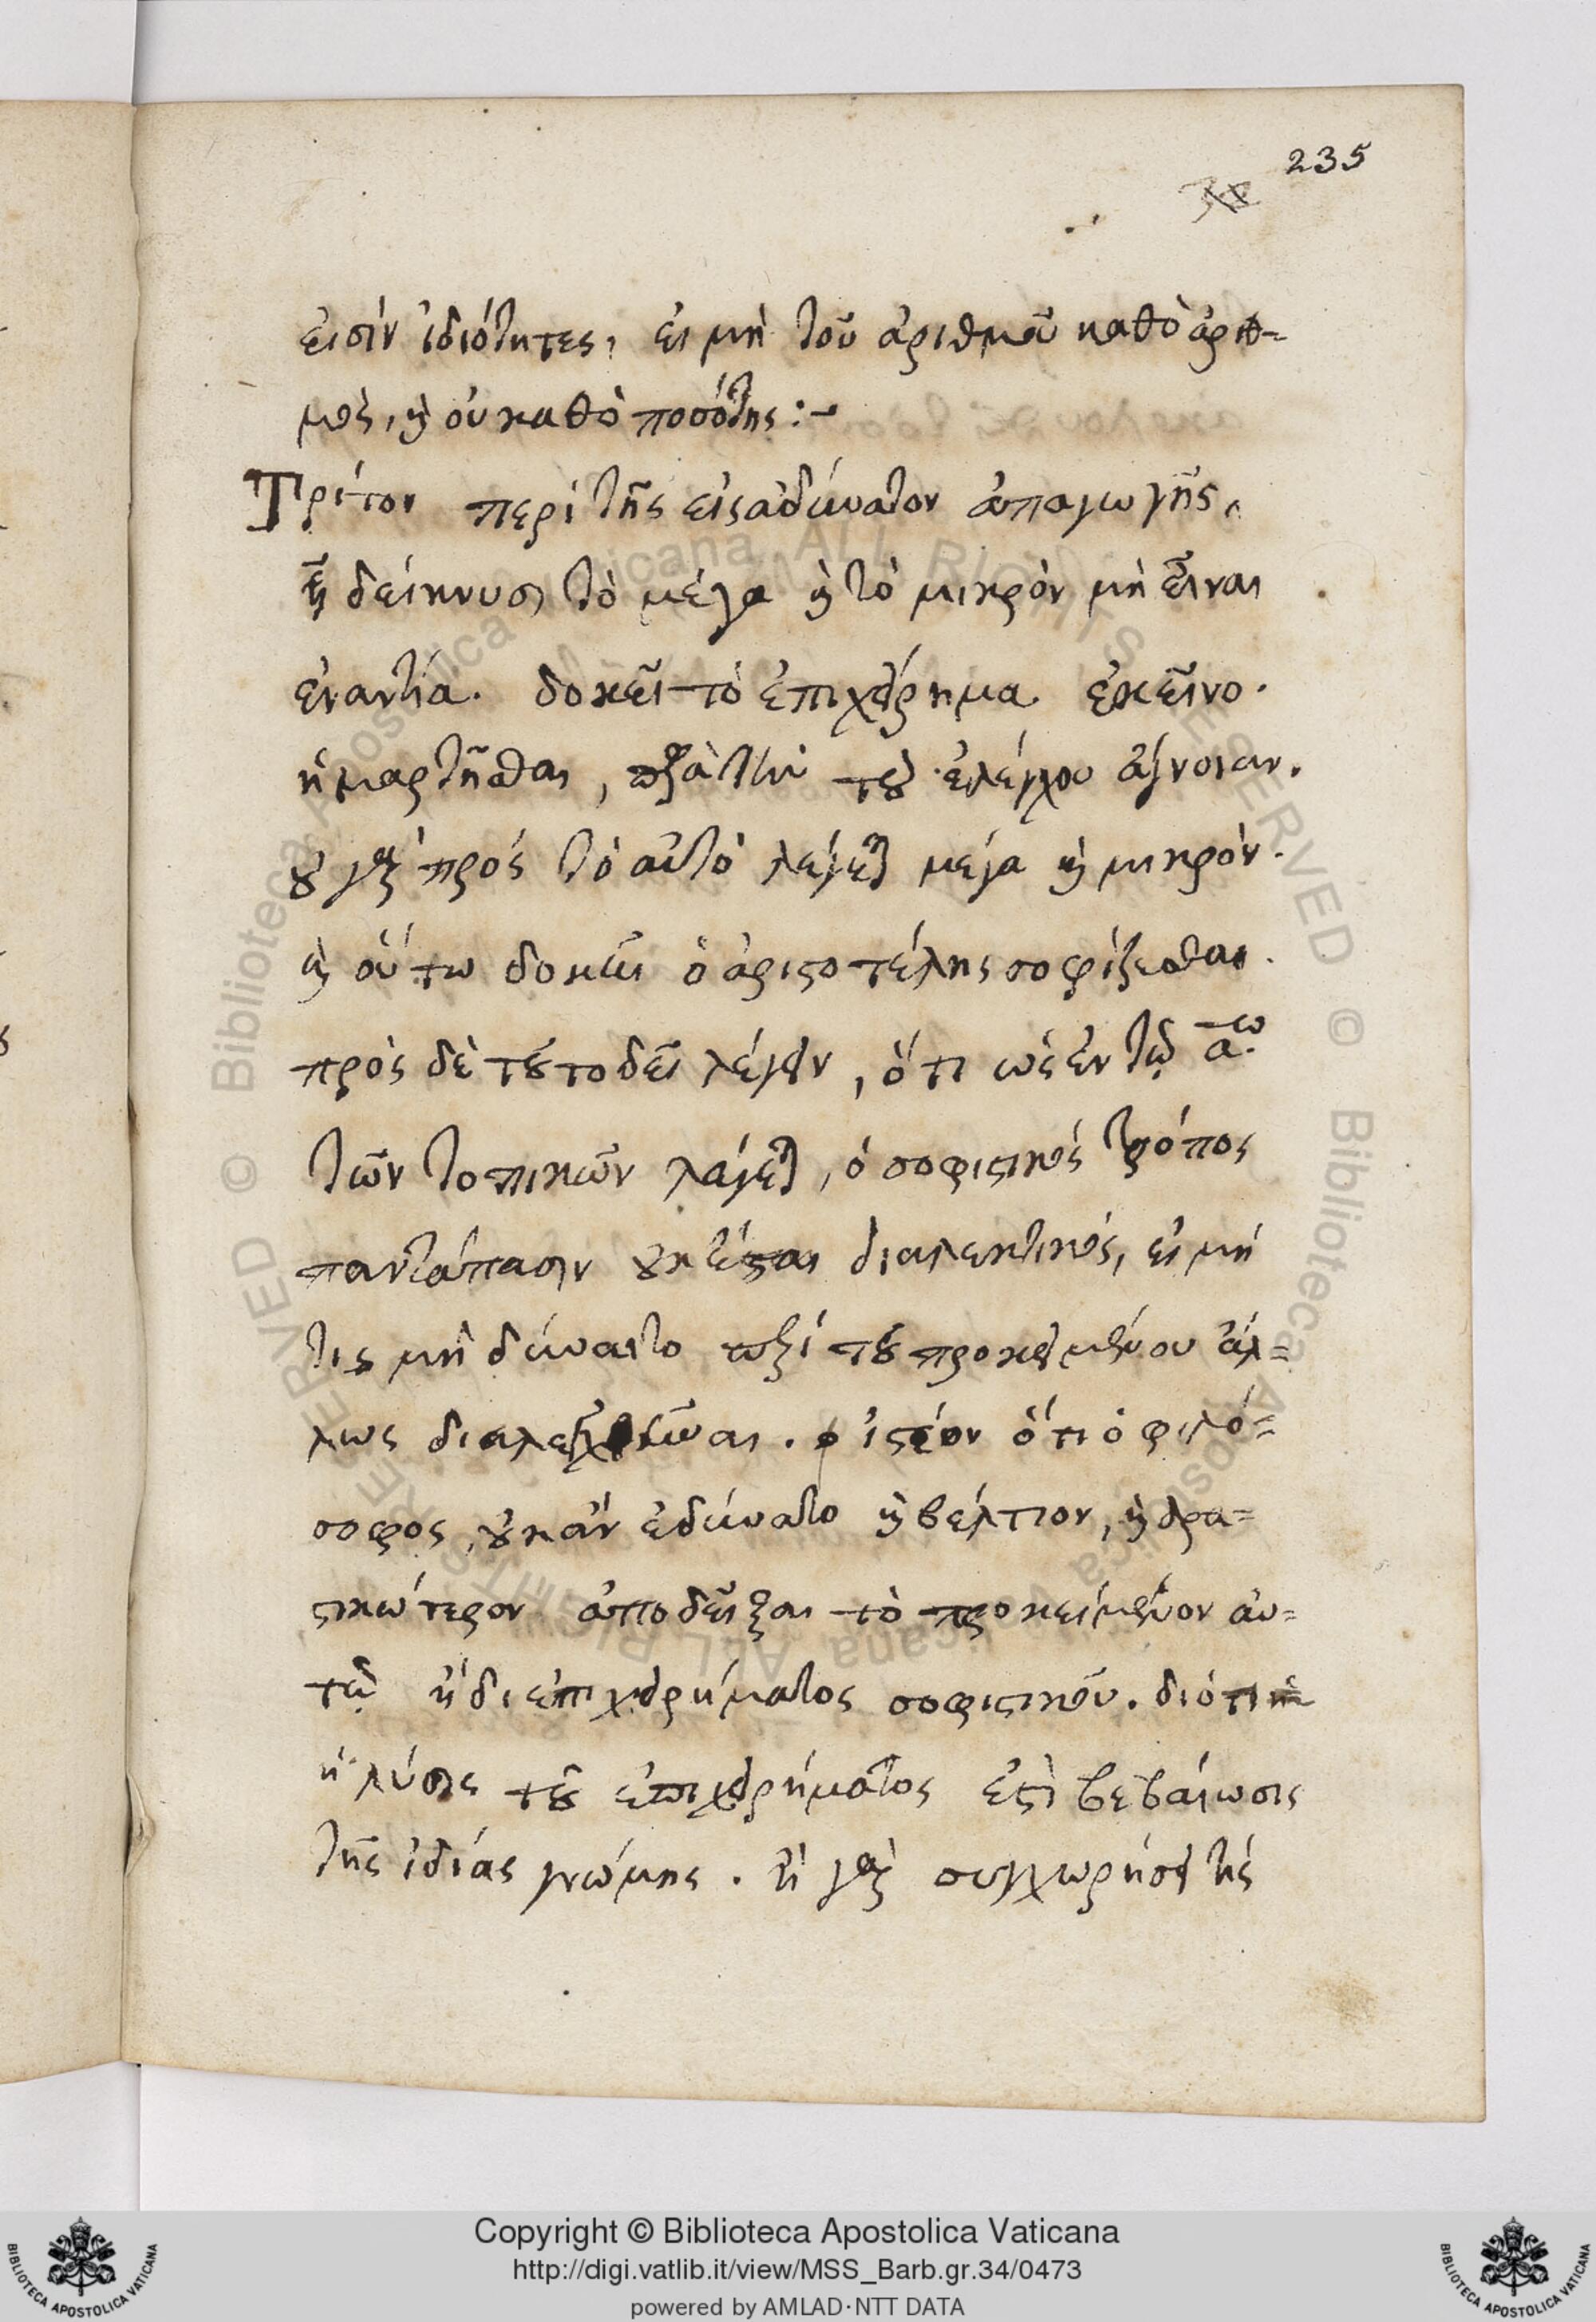 235
εἰσίν ἰδιότητες, εἰ μὴ τοῦ ἀριθμοῦ καθὸ ἀριθ-
μὸς, ϗ οὐ καθὸ ποσότης:-
Τρίτον περὶ τῆς εἰς ἀδύνατον ἀπαγωγῆς,
ᾗ δείκνυσι τὸ μέγα ϗ τὸ μικρὸν μὴ εἶναι
ἐναντία. δοκεῖ τὸ ἐπιχείρημα ἐκεῖνο.
ἡμαρτῆσθαι, παρὰ τὴν τȣ ἐλέγχου ἄγνοιαν.
ȣ γὰρ πρὸς τὸ αὐτὸ λέγεται μέγα ϗ μικρόν.
ϗ οὕτω δοκεῖ ὁ ἀριϛοτέλης σοφίζεσθαι.
πρὸς δὲ τȣτο δεῖ λέγειν, ὅτι ὡς ἐν τῷ α.ω
τῶν τοπικῶν λέγεται, ὁ σοφιϛικὸς τρόπος
παντάπασιν ȣκ ἔϛαι διαλεκτικός, εἰ μή
τις μὴ δύναιτο περὶ τȣ προκειμένου ἄλ=
λως διαλεχθῆναι. ἰϛέον ὅτι ὁ φιλό=
σοφος, ȣκ ἂν ἐδύνατο ϗ βέλτιον, ϗ δρα=
ϛικώτερον ἀποδεῖξαι τὸ προκείμενον αὐ=
τῷ ἢ δι ἐπιχειρήματος σοφιϛικοῦ. διότι
ἡ λύσις τȣ ἐπιχειρήματος ἐϛὶ βεβαίωσις
τῆς ἰδίας γνώμης. τί γὰρ συγχωρήσει τίς
Copyright © Biblioteca Apostolica Vaticana
http://digi.vatlib.it/view/MSS_Barb.gr.34/0473
powered by AMLAD·NTT DATA